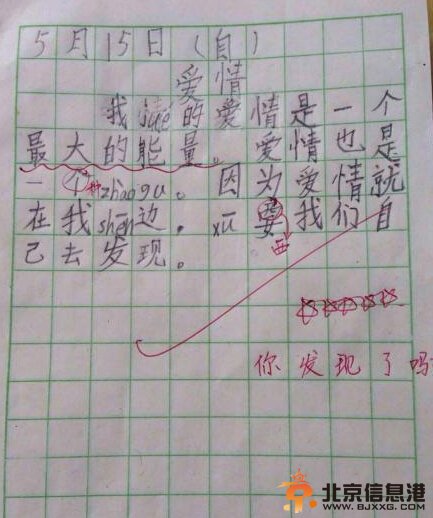 5月15日(自)
爱情
我jué的爱情是一个
最大的能量。爱情也是
一个zhàogu。因为爱情就
在我shēn边.xū要我们自
己去发现。
西
你发现了吗
北京信息港
WWW.BJXXG.COM